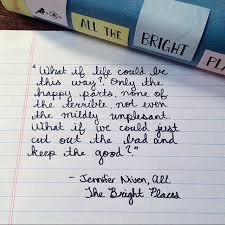 ALL THE
BRIGHT
PL
"What if life could be
this way? Only the
happy parts, none of
the terrible, not even
the mildly unplesant.
What if we could just
cut out the bad and
keep the good?"
- Jennifer Niven, All
The Bright Places